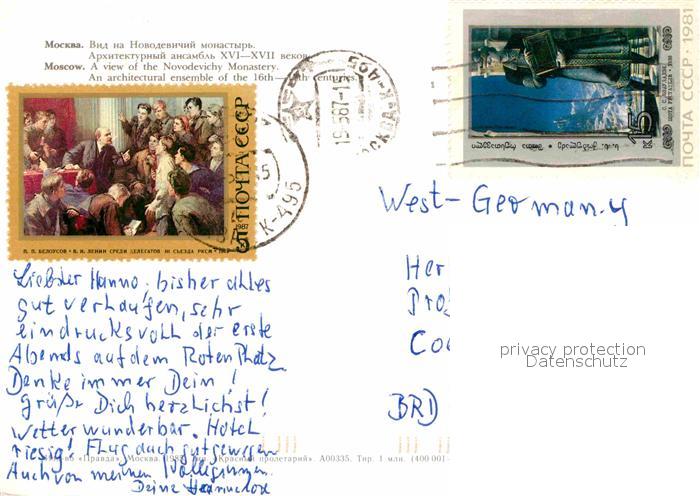 Москва. Вид на Новодевичий монастырь.
Архитектурный ансамбль XVI—XVII веков.
Moscow. A view of the Novodevichy Monastery.
An architectural ensemble of the 16th— th centuries.
ПОЧТА СССР 1981
15 к
ПОЧТА СССР
5к
1987
П. П. БЕЛОУСОВ • В. И. ЛЕНИН СРЕДИ ДЕЛЕГАТОВ III СЪЕЗДА РКСМ
К-495
West-Germany
Her
Pro
Co
BRD
privacy protection
Datenschutz
Liebster Hanno, bisher alles
gut verlaufen, sehr
eindrucksvoll der erste
Abends auf dem Roten Platz
Denke immer Dein!
grüßr Dich herzlichst!
Wetter wunderbar. Hotel
riesig! Flug auch gut gewesen
Auch von meinen Kolleginnen.
Deine
«Правда», Москва. А00335. Тир. 1 млн. (400 001-